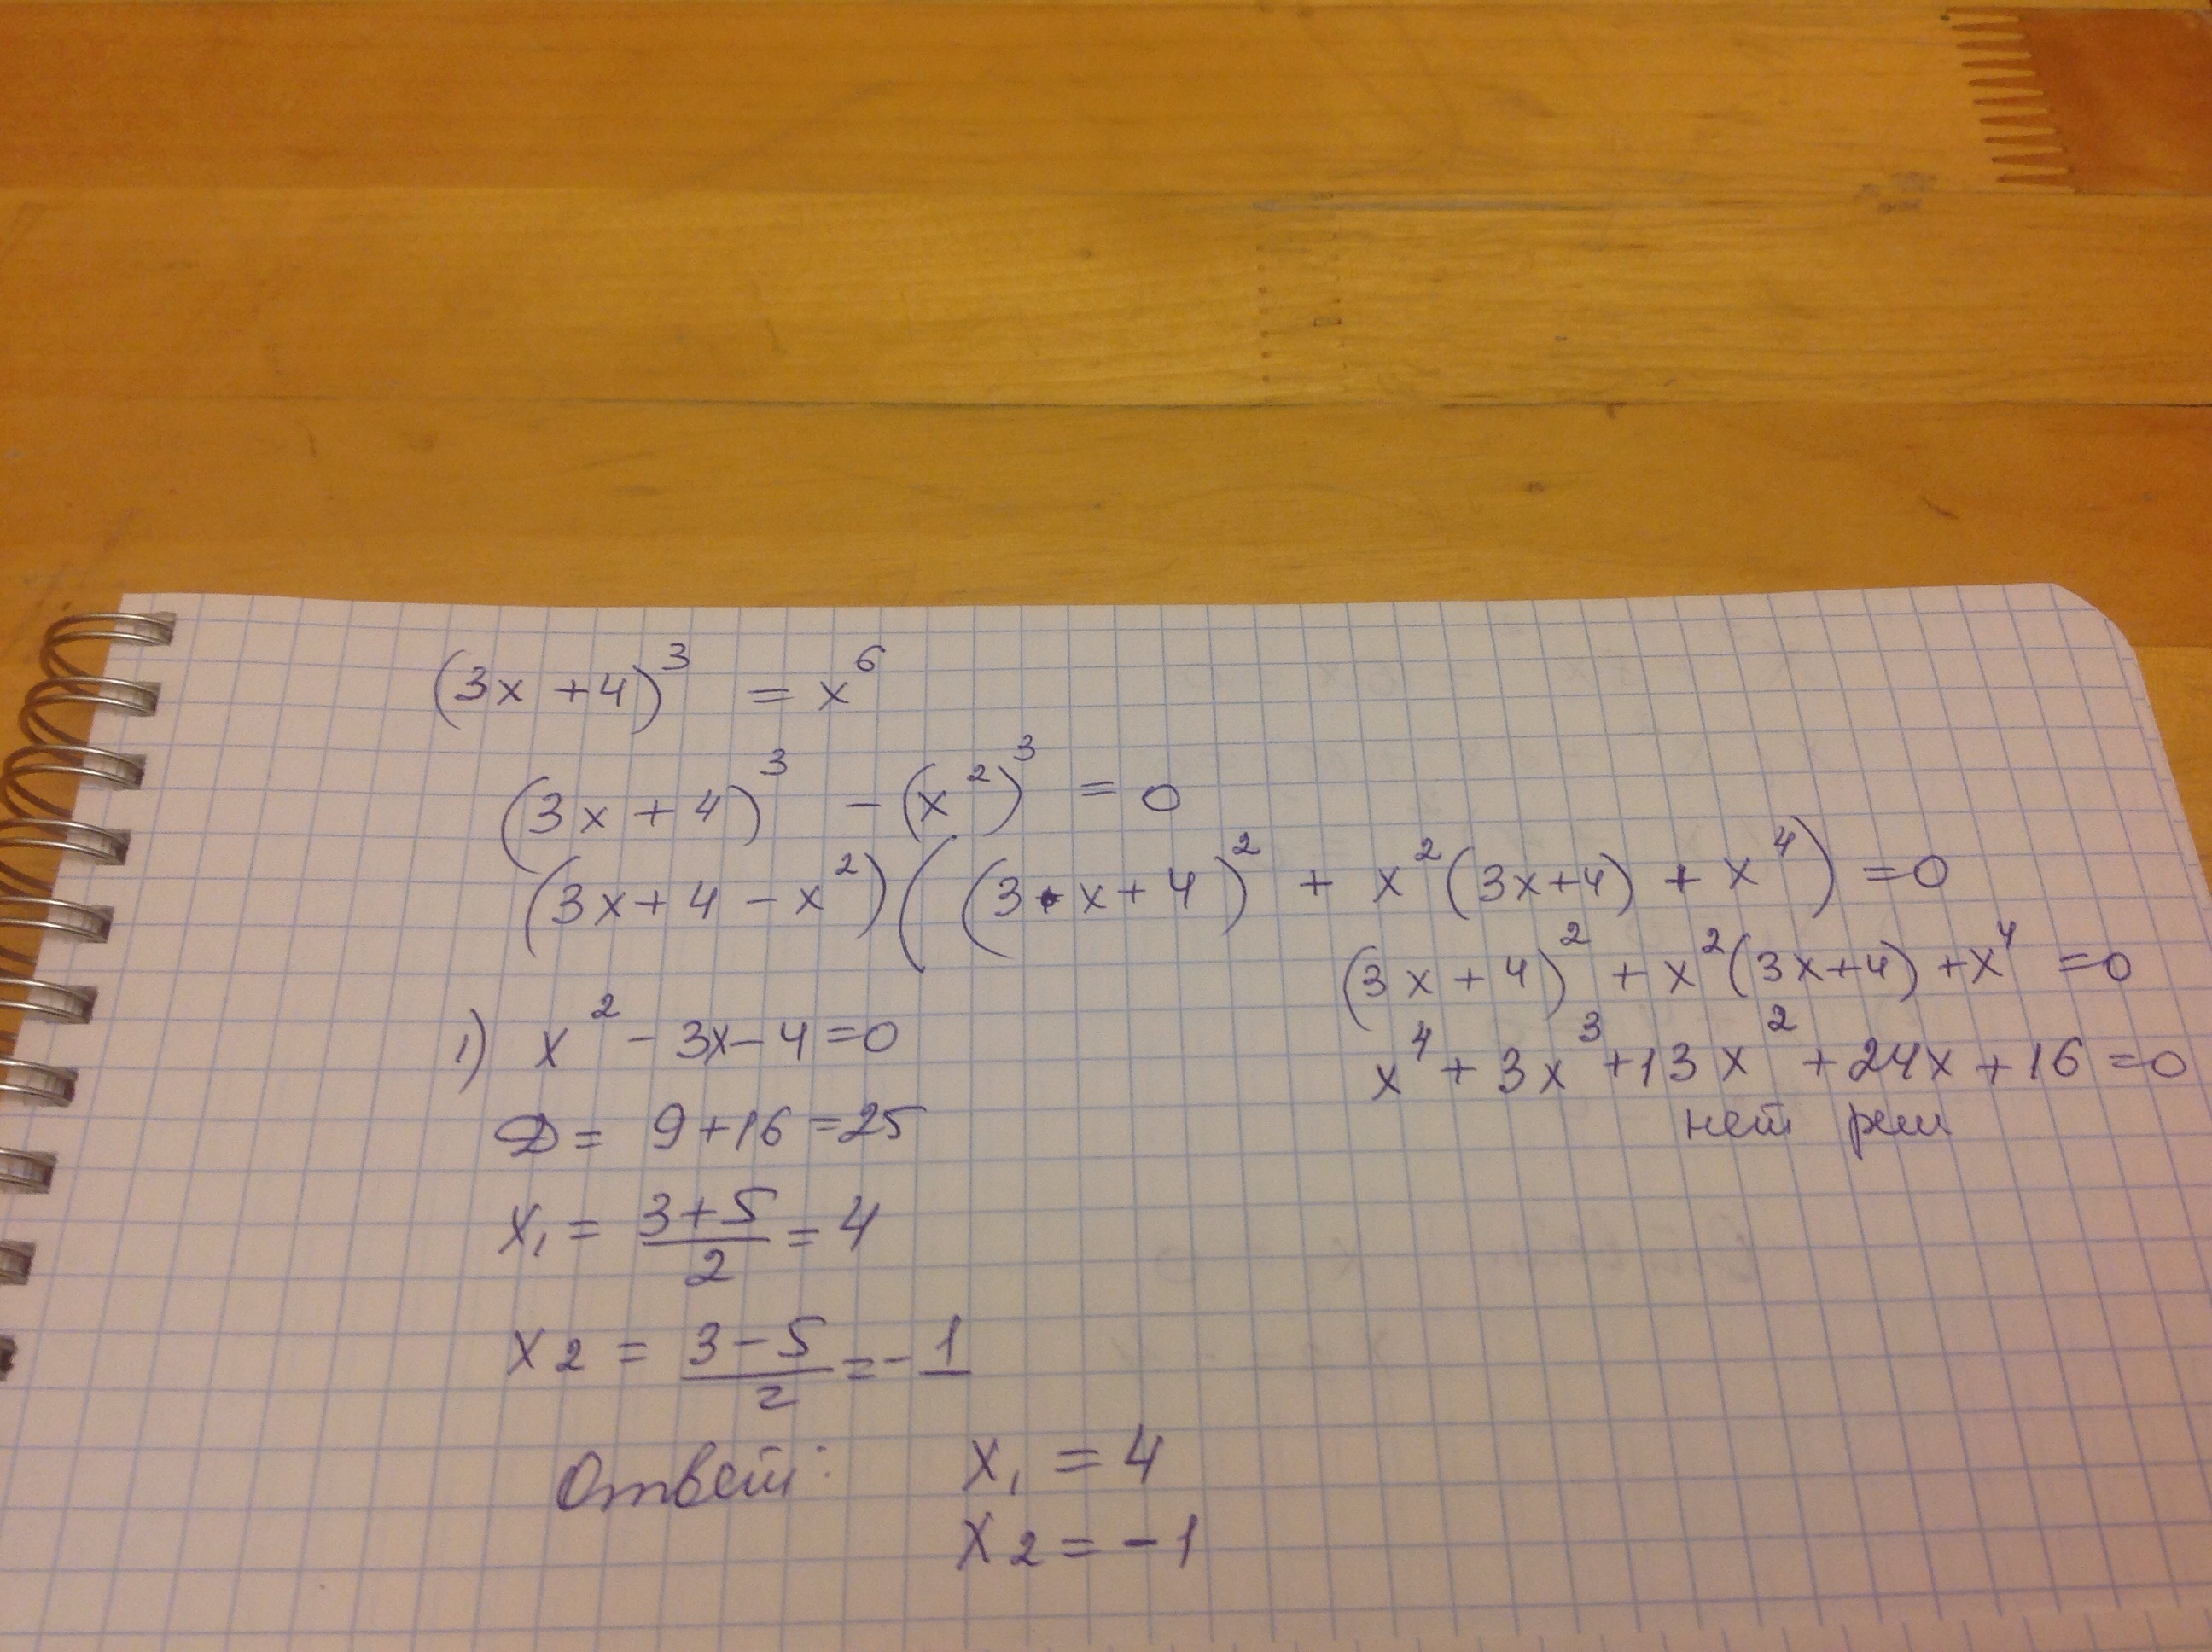 (3x + 4)³ = x⁶
(3x + 4)³ - (x²)³ = 0
(3x + 4 - x²)((3·x + 4)² + x²(3x+4) + x⁴) = 0
(3x + 4)² + x²(3x+4) + x⁴ = 0
x⁴ + 3x³ + 13x² + 24x + 16 = 0
нет реш
1) x² - 3x - 4 = 0
D = 9 + 16 = 25
x₁ = (3+5)/2 = 4
x₂ = (3-5)/2 = -1
Ответ: x₁ = 4
x₂ = -1